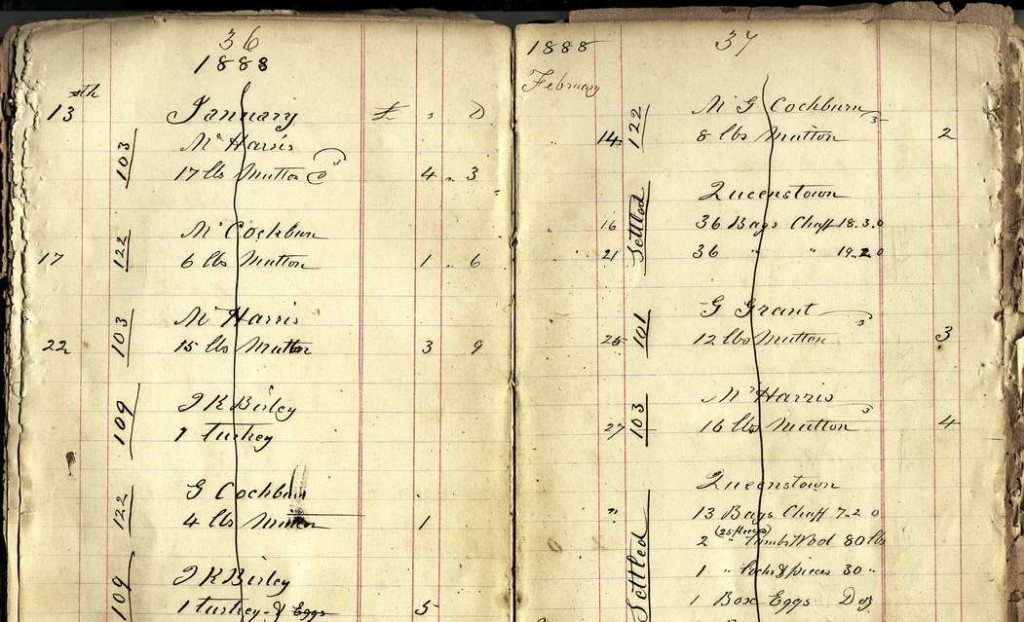 36
1888
13th January £ s D
103 Mr Harris
17 lbs Mutton @ 3 4 " 3
122 Mr Cochburn
17 6 lbs Mutton 1 " 6
103 Mr Harris
22 15 lbs Mutton 3 9
109 J K Birley
1 Turkey
122 G Cochburn
4 lbs Mutton 1
109 J K Birley
1 Turkey & Eggs 5
1888 37
February
122 Mr G Cochburn
14 8 lbs Mutton 3 2
Settled Queenstown
16 36 Bags Chaff 18.3.0
21 36 " " 19.2.0
101 G Grant
12 lbs Mutton 3 3
103 Mr Harris
27 16 lbs Mutton 3 4
Settled Queenstown
" 13 Bags Chaff 7.2.0
2 " Lambs Wool 80 lbs
1 " Locks & pieces 30 "
1 Box Eggs Doz